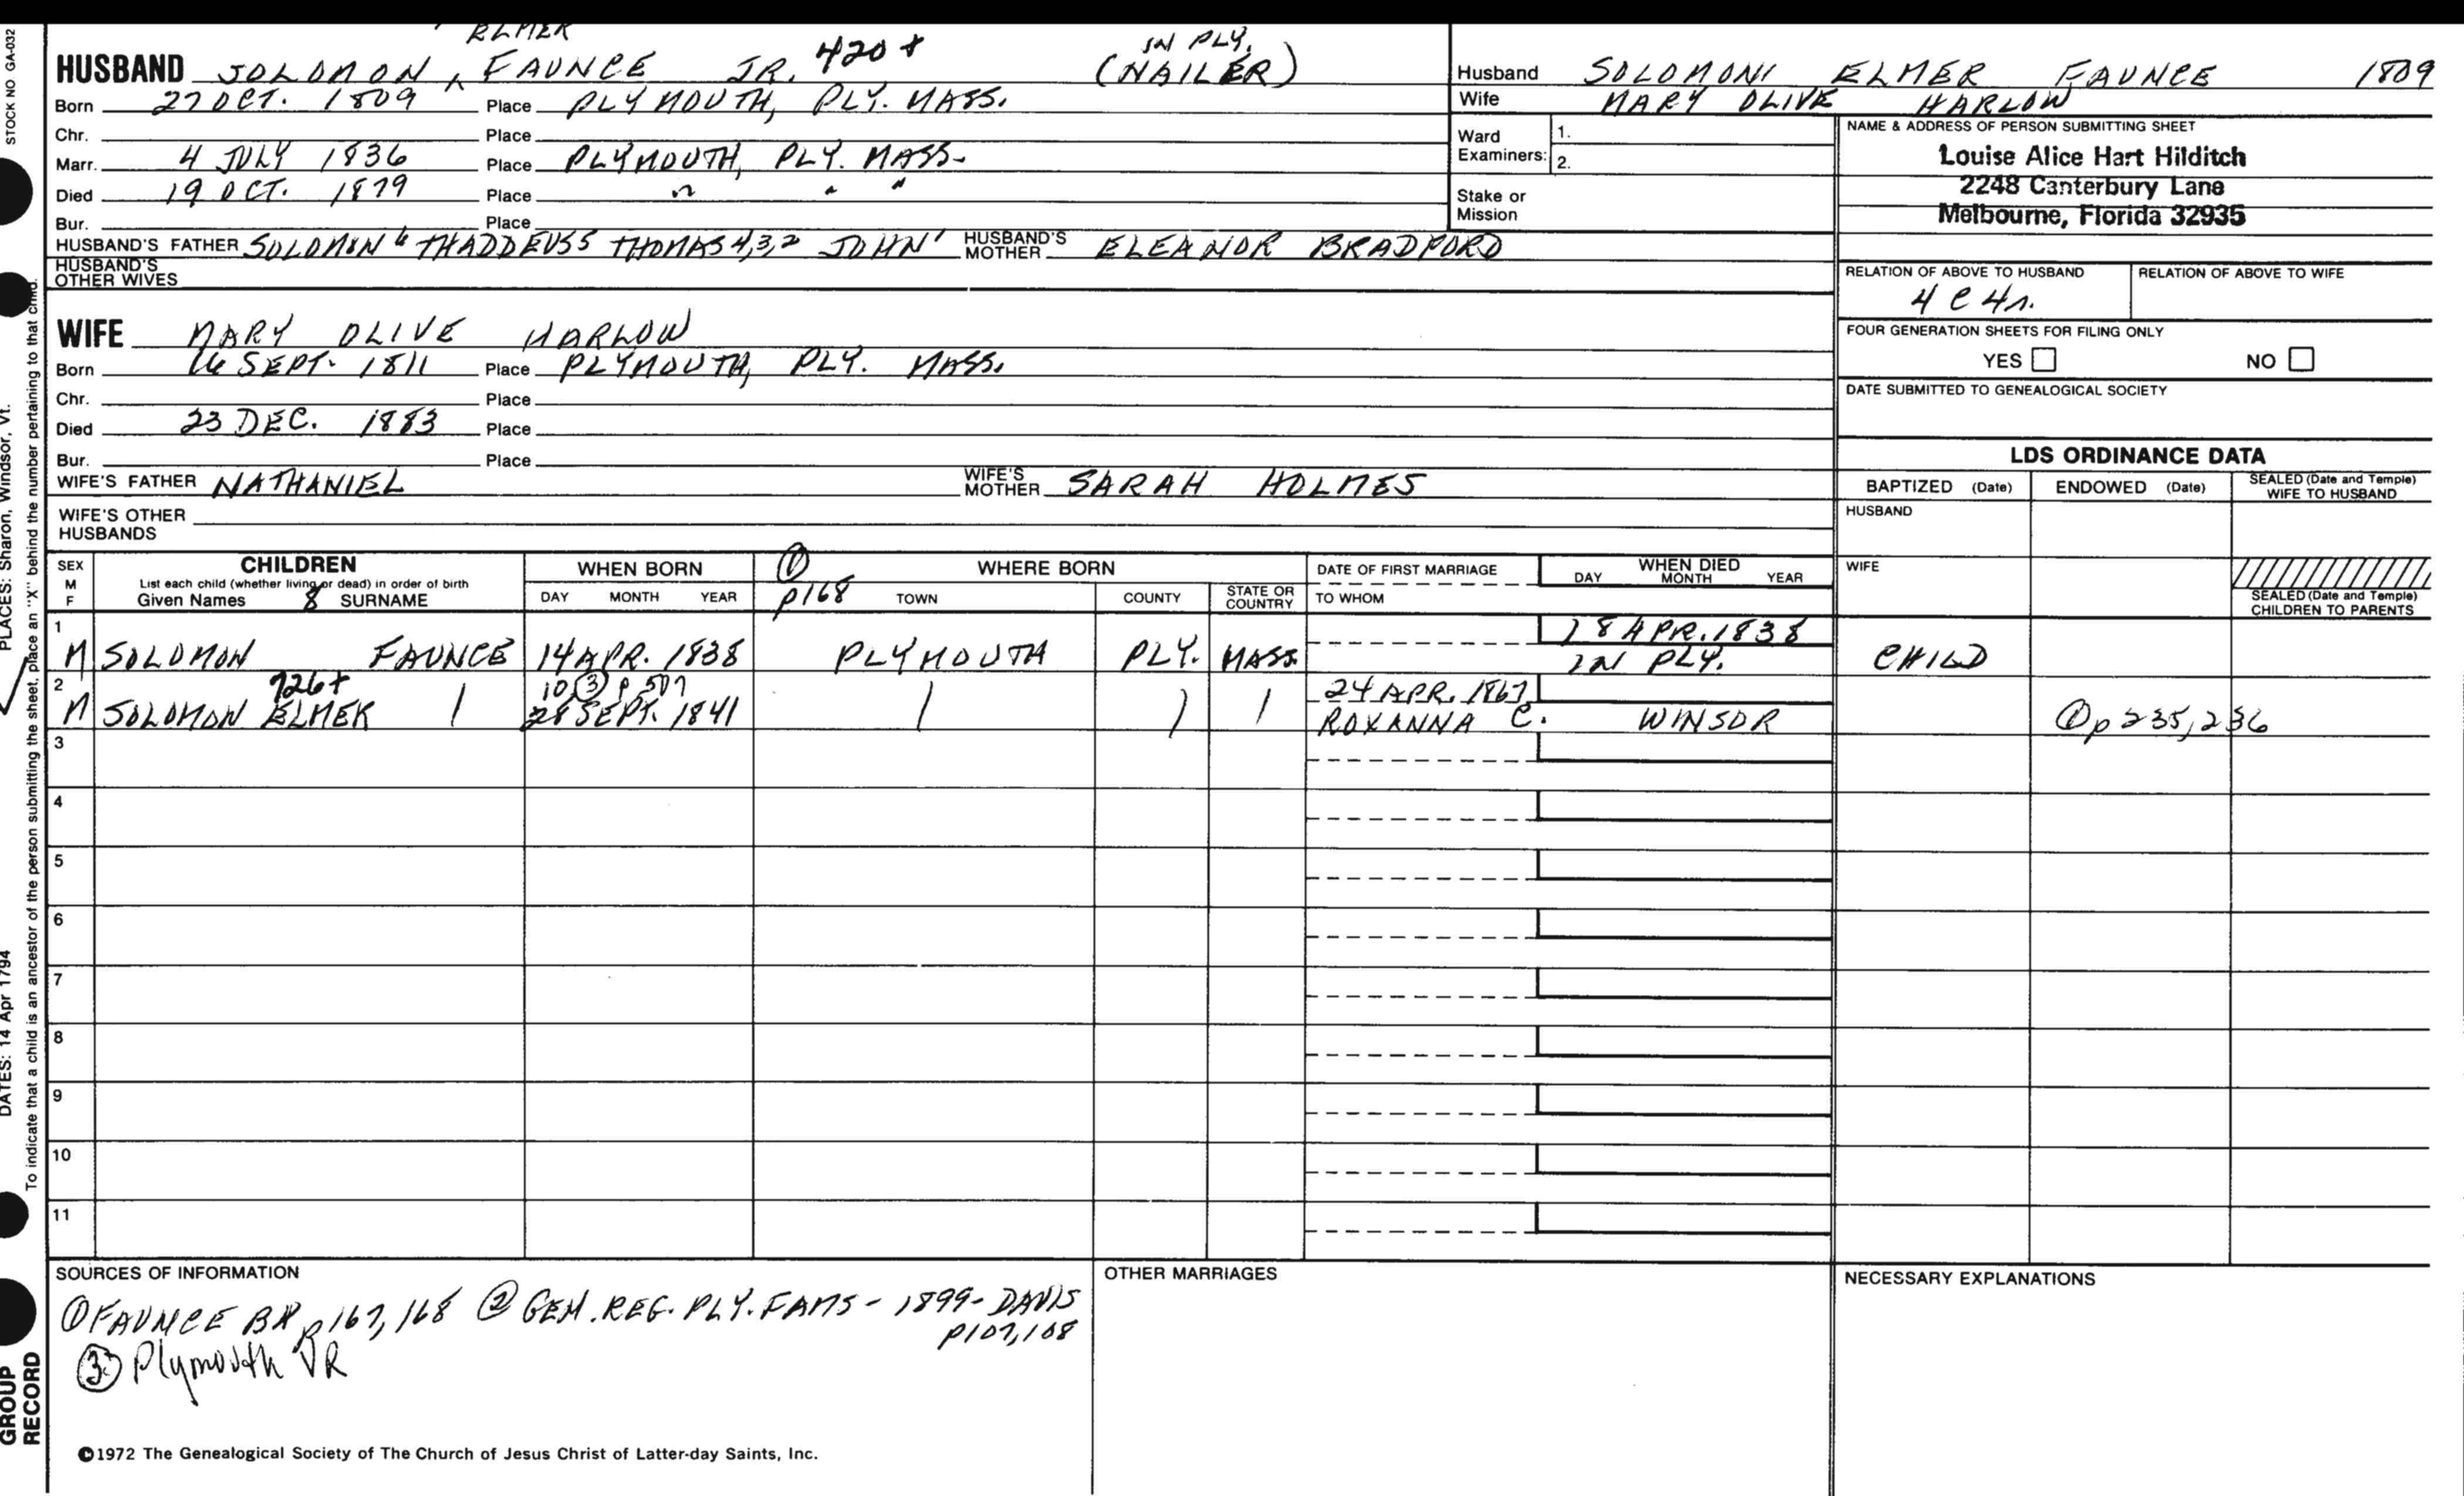 ELMER
HUSBAND SOLOMON, ^ FAUNCE JR. 420+ IN PLY. (NAILER)
Born 27 OCT. 1809 Place PLYMOUTH, PLY. MASS.
Chr. Place
Marr. 4 JULY 1836 Place PLYMOUTH, PLY. MASS.
Died 19 OCT. 1879 Place " " "
Bur. Place
HUSBAND'S FATHER SOLOMON 6 THADDEUS5 THOMAS 4,3,2 JOHN' HUSBAND'S MOTHER ELEANOR BRADFORD
HUSBAND'S OTHER WIVES
WIFE MARY OLIVE HARLOW
Born 16 SEPT. 1811 Place PLYMOUTH, PLY. MASS.
Chr. Place
Died 23 DEC. 1883 Place
Bur. Place
WIFE'S FATHER NATHANIEL WIFE'S MOTHER SARAH HOLMES
WIFE'S OTHER HUSBANDS
Husband SOLOMON ELMER FAUNCE 1809
Wife MARY OLIVE HARLOW
Ward Examiners: 1.
2.
Stake or Mission
NAME & ADDRESS OF PERSON SUBMITTING SHEET
Louise Alice Hart Hilditch
2248 Canterbury Lane
Melbourne, Florida 32935
RELATION OF ABOVE TO HUSBAND RELATION OF ABOVE TO WIFE
4 C 4r.
FOUR GENERATION SHEETS FOR FILING ONLY
YES NO
DATE SUBMITTED TO GENEALOGICAL SOCIETY
LDS ORDINANCE DATA
BAPTIZED (Date) ENDOWED (Date) SEALED (Date and Temple) WIFE TO HUSBAND
HUSBAND
WIFE
SEALED (Date and Temple) CHILDREN TO PARENTS
SEX M F
CHILDREN
List each child (whether living or dead) in order of birth
Given Names 8 SURNAME
WHEN BORN
DAY MONTH YEAR
① p168
WHERE BORN
TOWN COUNTY STATE OR COUNTRY
DATE OF FIRST MARRIAGE
TO WHOM
WHEN DIED
DAY MONTH YEAR
1
M SOLOMON FAUNCE 14 APR. 1838 PLYMOUTH PLY. MASS. 18 APR. 1838 IN PLY. CHILD
2 726+ 10 ③ p 507 24 APR. 1867
M SOLOMON ELMER | 28 SEPT. 1841 | ) | ROXANNA C. WINSOR ① p 235, 236
3
4
5
6
7
8
9
10
11
SOURCES OF INFORMATION
① FAUNCE BK p 167, 168 ② GEN. REG. PLY. FAMS - 1899 - DAVIS
p107,108
③ Plymouth VR
OTHER MARRIAGES
NECESSARY EXPLANATIONS
©1972 The Genealogical Society of The Church of Jesus Christ of Latter-day Saints, Inc.
STOCK NO GA-032
PLACES: Sharon, Windsor, Vt.
DATES: 14 Apr 1794
To indicate that a child is an ancestor of the person submitting the sheet, place an "X" behind the number pertaining to that child.
GROUP RECORD